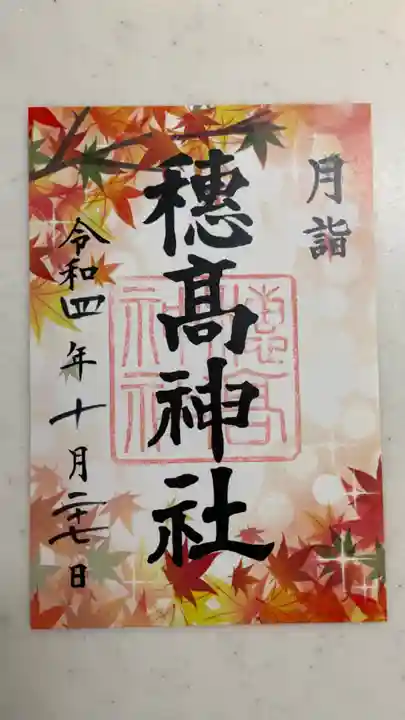 月詣
穂髙神社
穂高神社
令和四年十月二十七日